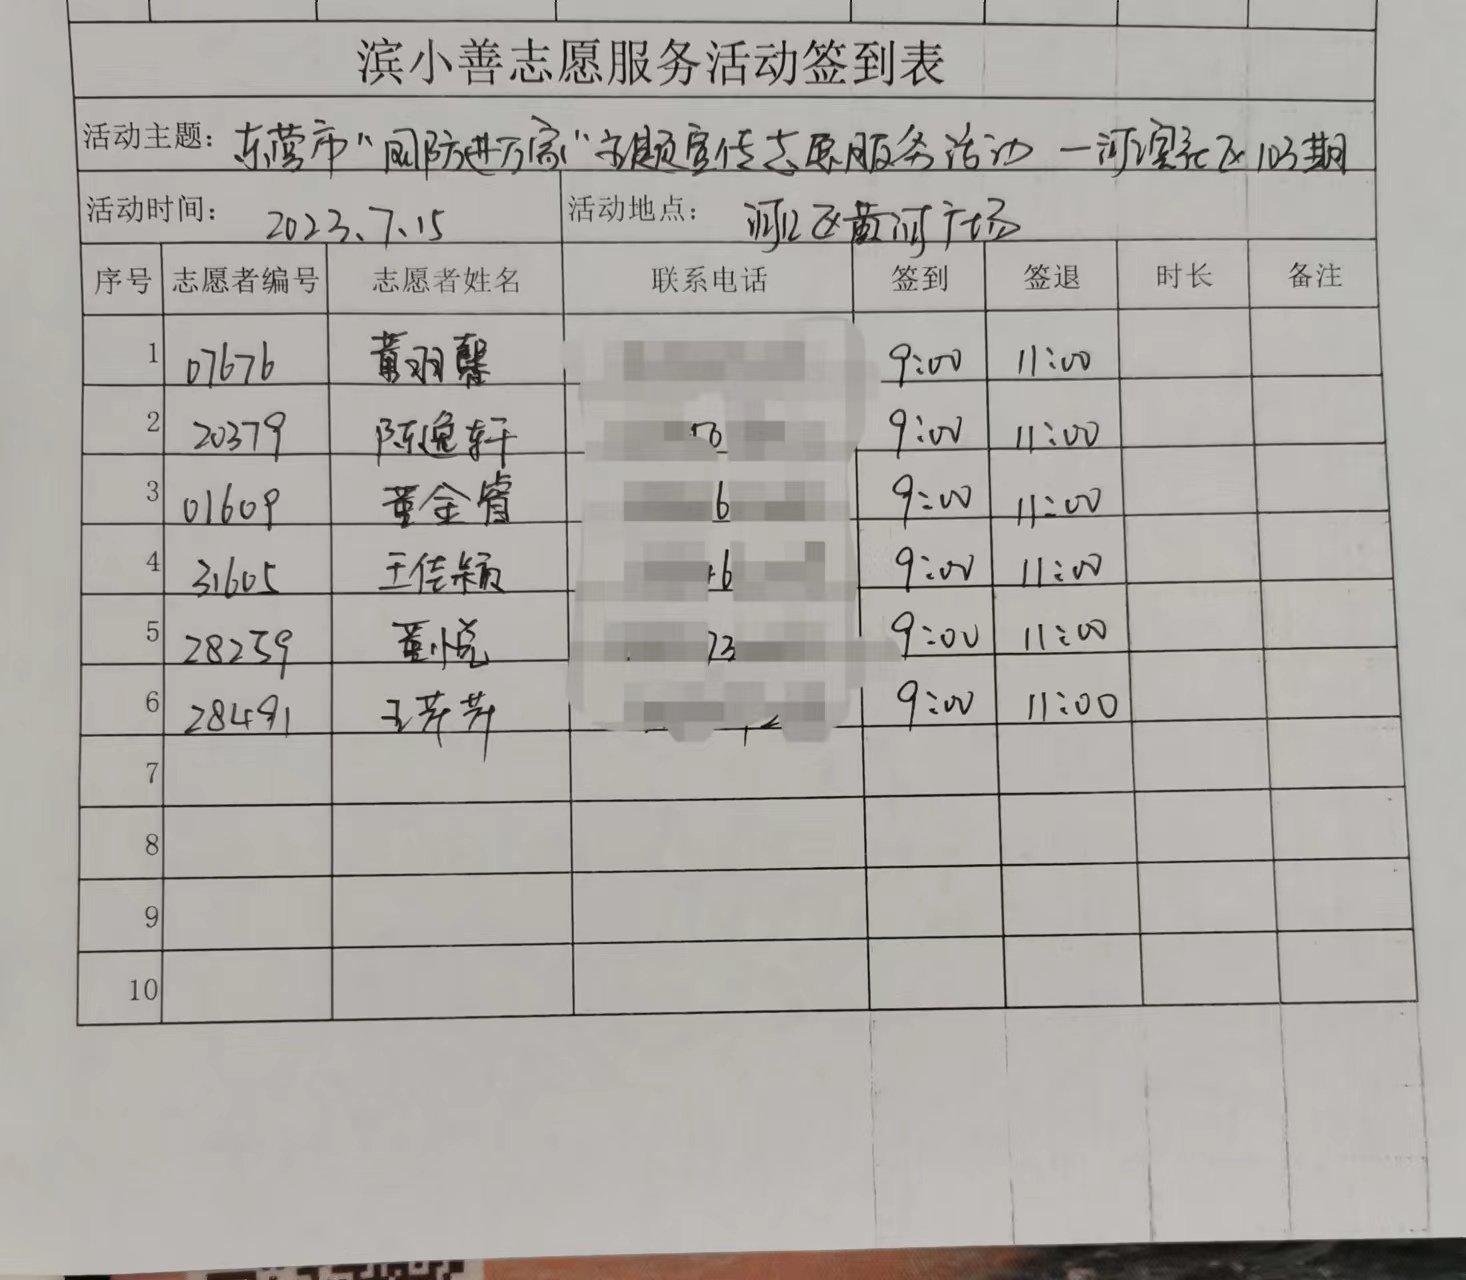 滨小善志愿服务活动签到表
活动主题: 东营市"国防进万家"主题宣传志愿服务活动 一河滨社区103期
活动时间: 2023.7.15 活动地点: 河口区黄河广场
序号 志愿者编号 志愿者姓名 联系电话 签到 签退 时长 备注
1 07676 黄羽馨 9:00 11:00
2 20379 陈逸轩 9:00 11:00
3 01609 董金睿 6 9:00 11:00
4 31605 王佳颖 6 9:00 11:00
5 28259 董悦 73 9:00 11:00
6 28491 王芹芹 9:00 11:00
7
8
9
10